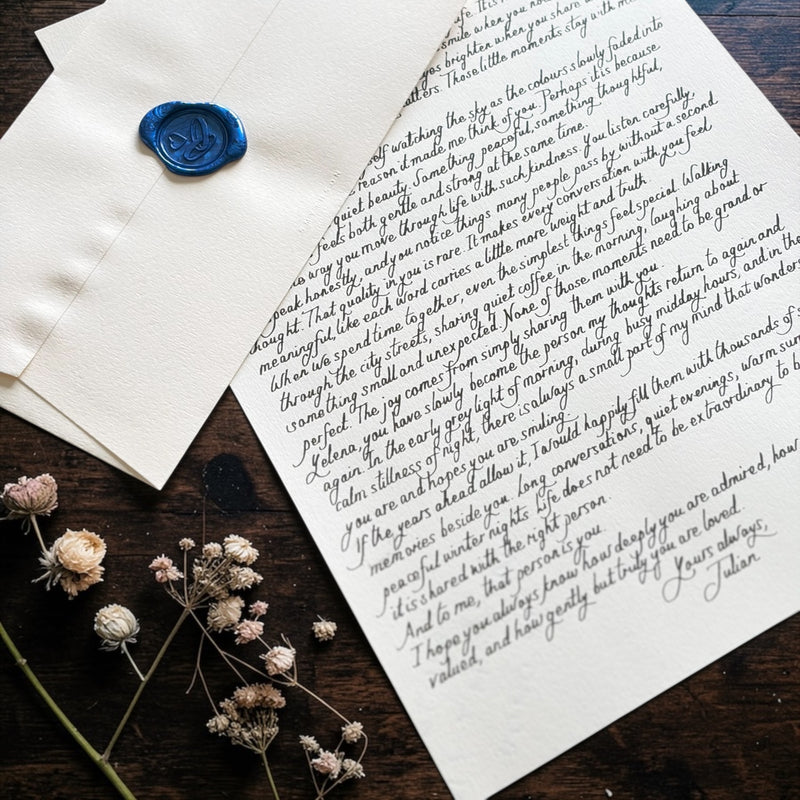 life. It is
smile when you
eyes brighten when you share
matters. Those little moments stay with me
self watching the sky as the colours slowly faded into
reason it made me think of you. Perhaps it is because
quiet beauty. Something peaceful, something thoughtful,
feels both gentle and strong at the same time.
way you move through life with such kindness. You listen carefully,
speak honestly, and you notice things many people pass by without a second
thought. That quality in you is rare. It makes every conversation with you feel
meaningful, like each word carries a little more weight and truth
When we spend time together, even the simplest things feel special. Walking
through the city streets, sharing quiet coffee in the morning, laughing about
something small and unexpected. None of those moments need to be grand or
perfect. The joy comes from simply sharing them with you.
Yelena, you have slowly become the person my thoughts return to again and
again. In the early grey light of morning, during busy midday hours, and in the
calm stillness of night, there is always a small part of my mind that wonders
you are and hopes you are smiling.
If the years ahead allow it, I would happily fill them with thousands of
memories beside you. Long conversations, quiet evenings, warm
peaceful winter nights. Life does not need to be extraordinary to
it is shared with the right person.
And to me, that person is you.
I hope you always know how deeply you are admired, how
valued, and how gently but truly you are loved.
Yours always,
Julian